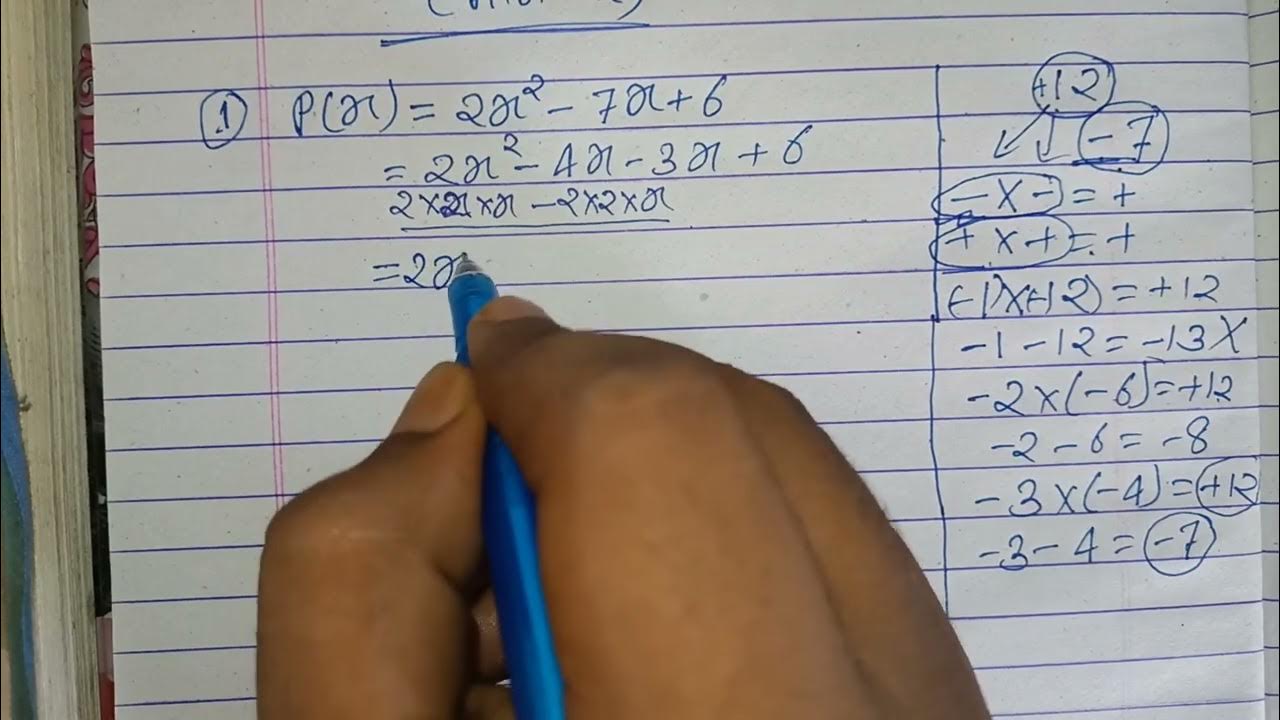 ① P(x) = 2x² - 7x + 6
= 2x² - 4x - 3x + 6
2 × x × x - 2 × 2 × x
= 2x
+12
- 7
- × - = +
+ × + = +
(-1)×(-12) = +12
-1 - 12 = -13 X
-2 × (-6) = +12
-2 - 6 = -8
-3 × (-4) = +12
-3 - 4 = -7